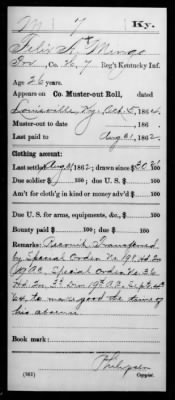 M | 7 | Ky.
Felix A. Mingo
Co. H, 7 Reg't Kentucky Inf.
Age 26 years.
Appears on Co. Muster-out Roll, dated
Louisville, Ky, Oct. 5, 1864
Muster-out to date , 186
Last paid to Aug 31, 1862
Clothing account:
Last settled Aug 31, 1862; drawn since $ 30 100
Due soldier $ 100; due U. S. $ 100
Am't for cloth'g in kind or money adv'd $ 100
Due U. S. for arms, equipments, &c., $ 100
Bounty paid $ 100; due $ 100
Remarks: Transferred
by Special Order No. 191
Special Order No. 36
Hd. Qrs. 3d Div 19th A.C. Sept. 4th
64, to make good the time of
his absence
Book mark:
(361) Copyist.